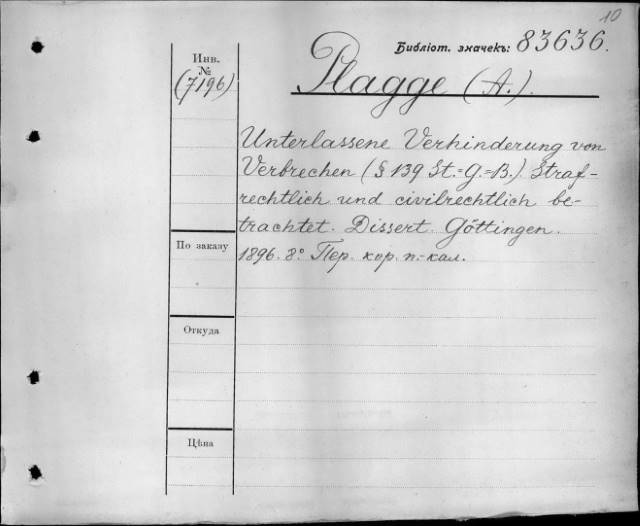 10
Библіот. значекъ: 83636.
Инв.
№
(7196)
Plagge (A.).
Unterlassene Verhinderung von
Verbrechen (§ 139 St.=G.=B.) Straf-
rechtlich und civilrechtlich be-
trachtet. Dissert. Göttingen.
1896. 8° Пер. кор. п.-кал.
По заказу
Откуда
Цѣна